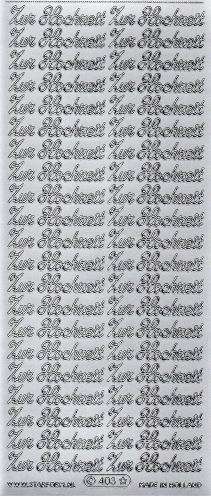 Zur Hochzeit Zur Hochzeit
Zur Hochzeit Zur Hochzeit
Zur Hochzeit Zur Hochzeit
Zur Hochzeit Zur Hochzeit
Zur Hochzeit Zur Hochzeit
Zur Hochzeit Zur Hochzeit
Zur Hochzeit Zur Hochzeit
Zur Hochzeit Zur Hochzeit
Zur Hochzeit Zur Hochzeit
Zur Hochzeit Zur Hochzeit
Zur Hochzeit Zur Hochzeit
Zur Hochzeit Zur Hochzeit
Zur Hochzeit Zur Hochzeit
Zur Hochzeit Zur Hochzeit
Zur Hochzeit Zur Hochzeit
Zur Hochzeit Zur Hochzeit
Zur Hochzeit Zur Hochzeit
Zur Hochzeit Zur Hochzeit
Zur Hochzeit Zur Hochzeit
Zur Hochzeit Zur Hochzeit
Zur Hochzeit Zur Hochzeit
© 403 MADE IN HOLLAND